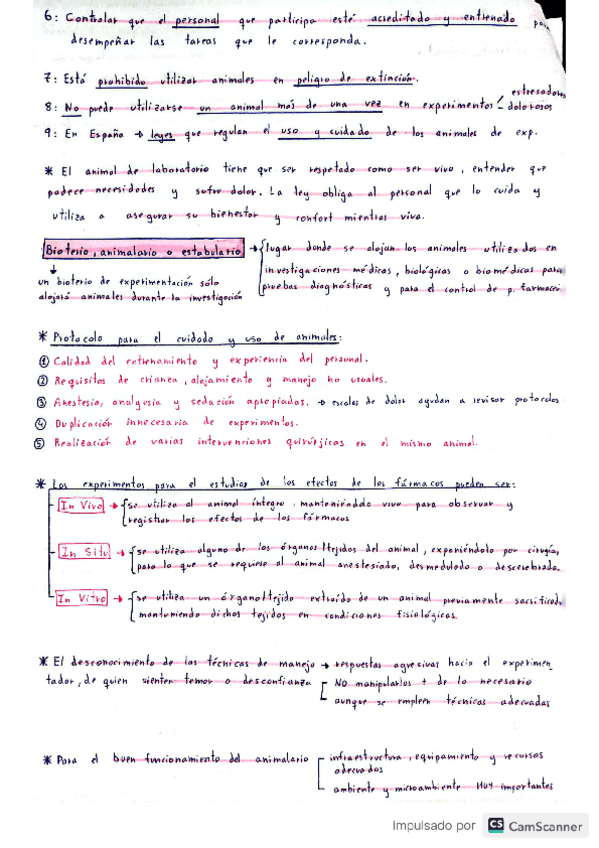 6: Controlar que el personal que participa esté acreditado y entrenado para
desempeñar las tareas que le corresponda.
7: Está prohibido utilizar animales en peligro de extinción.
8: No puede utilizarse un animal más de una vez en experimentos estresadores
dolorosos
9: En España → leyes que regulan el uso y cuidado de los animales de exp.
* El animal de laboratorio tiene que ser respetado como ser vivo, entender que
padece necesidades y sufre dolor. La ley obliga al personal que lo cuida y
utiliza a asegurar su bienestar y confort mientras viva.
Bioterio, animalario o estabulario → lugar donde se alojan los animales utilizados en
investigaciones médicas, biológicas o biomédicas para
pruebas diagnósticas y para el control de p. farmacé
un bioterio de experimentación sólo
alojará animales durante la investigación
* Protocolo para el cuidado y uso de animales:
1 Calidad del entrenamiento y experiencia del personal.
2 Requisitos de crianza, alojamiento y manejo no usuales.
3 Anestesia, analgesia y sedación apropiadas. → escalas de dolor ayudan a revisar protocolos
4 Duplicación innecesaria de experimentos.
5 Realización de varias intervenciones quirúrjicas en el mismo animal.
* Los experimentos para el estudios de los efectos de los fármacos pueden ser:
In Vivo → se utiliza al animal íntegro, manteniéndolo vivo para observar y
registrar los efectos de los fármacos
In Situ → se utiliza alguno de los órganos/tejidos del animal, exponiéndolo por cirugía,
para lo que se requiere al animal anestesiado, desmedulado o descerebrado.
In Vitro → se utiliza un órgano/tejido extraído de un animal previamente sacrificado
manteniendo dichos tejidos en condiciones fisiológicas.
* El desconocimiento de las técnicas de manejo → respuestas agresivas hacia el experimen
tador, de quien sienten temor o desconfianza
NO manipularlos + de lo necesario
aunque se empleen técnicas adecuadas
* Para el buen funcionamiento del animalario
infraestructura, equipamiento y recursos
adecuados
ambiente y microambiente MUY importantes
Impulsado por CS CamScanner